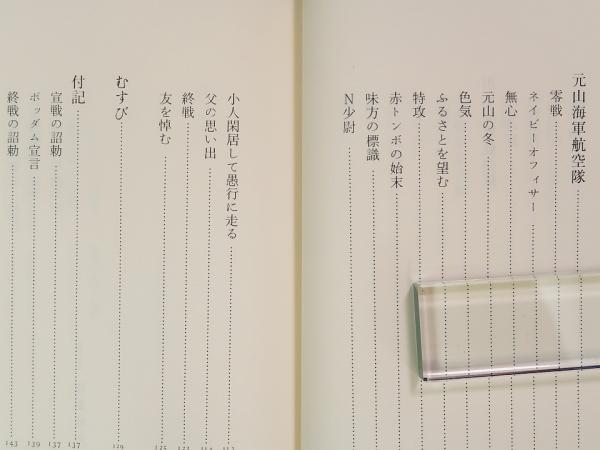 元山海軍航空隊
零戦
ネイビーオフィサー
無心
元山の冬
色気
ふるさとを望む
特攻
赤トンボの始末
味方の標識
N少尉
小人閑居して愚行に走る
父の思い出
終戦
友を悼む
むすび 129
付記 137
宣戦の詔勅 137
ポツダム宣言 139
終戦の詔勅 143